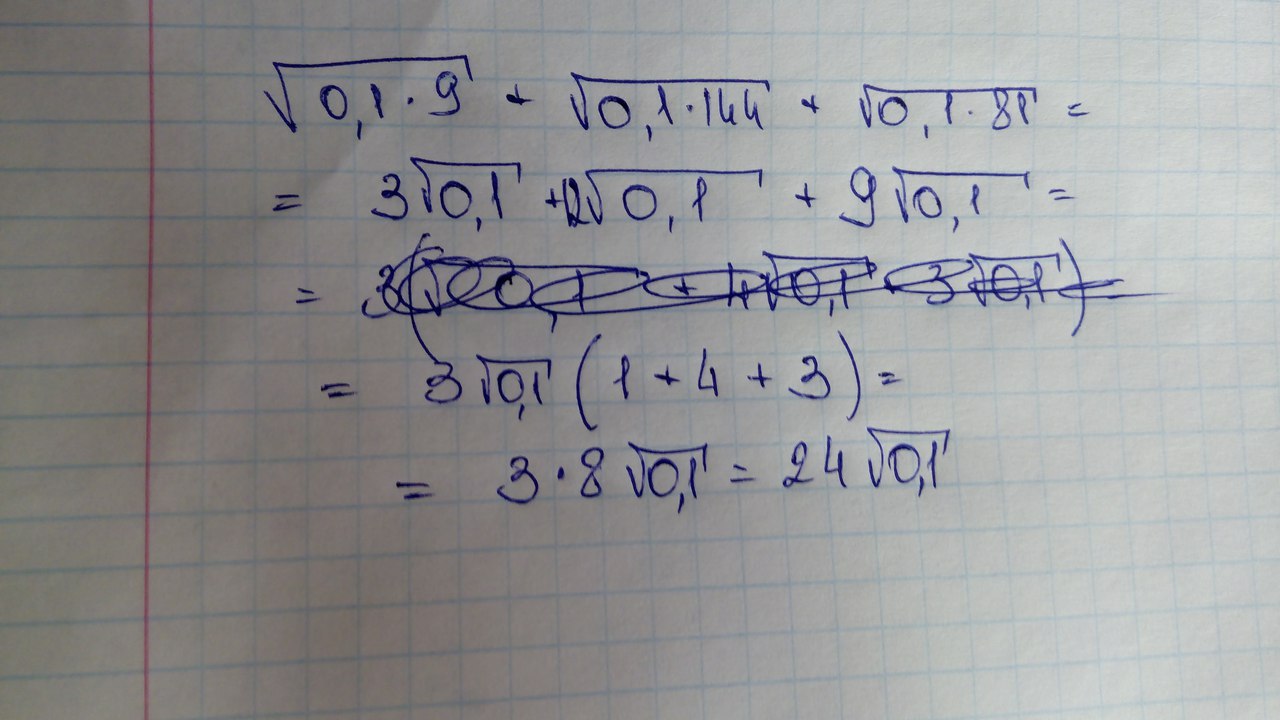 √0,1·9 + √0,1·144 + √0,1·81 =
= 3√0,1 + 12√0,1 + 9√0,1 =
=
= 3√0,1 (1 + 4 + 3) =
= 3·8√0,1 = 24√0,1